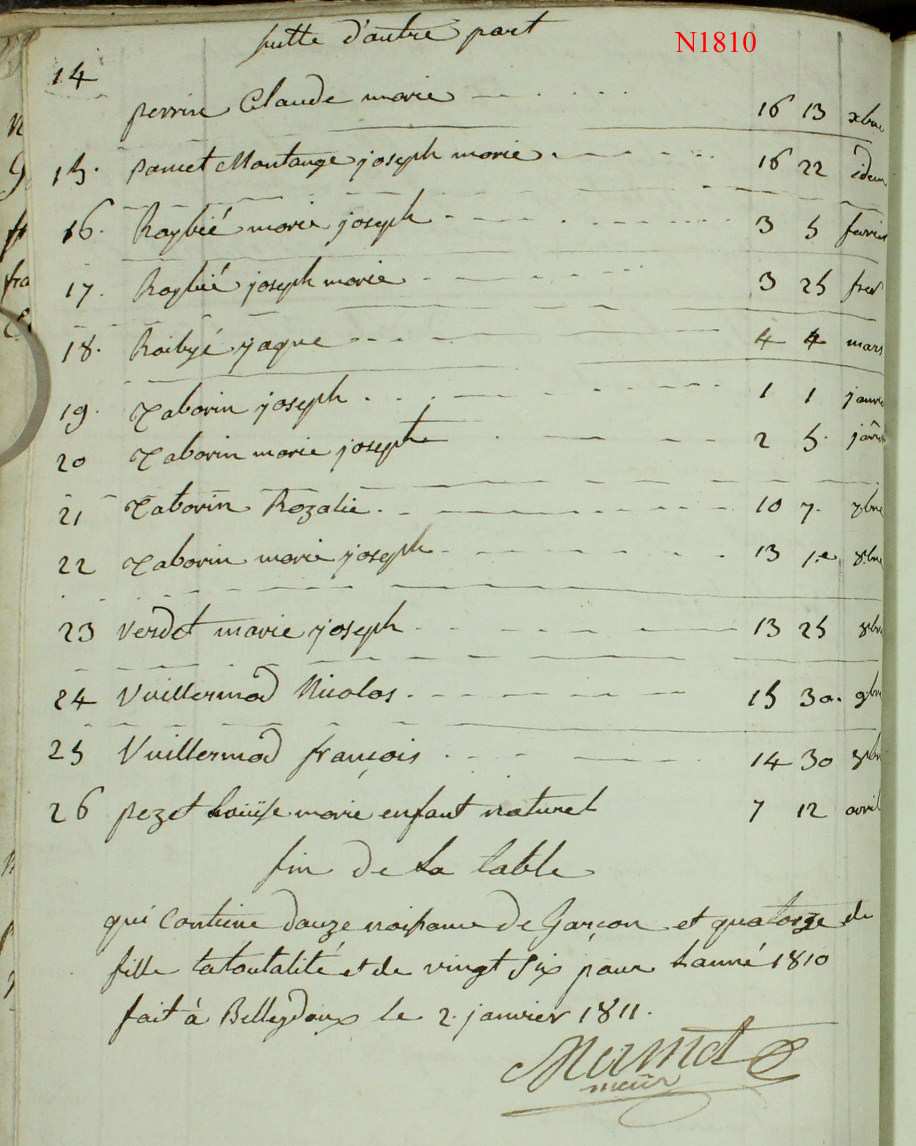 suitte d'autre part
N1810
14 perrin Claude marie 16 13 xbre
15. poncet Montange joseph marie 16 22 idem
16. Roybié marie joseph 3 5 fevrier
17. Roybié joseph marie 3 25 fred
18. Roibyé jaque 4 4 mars
19. Taborin joseph 1 1 janvie
20 Taborin marie josepht 2 5. janv
21 Taborin Rozalie 10 7. 7bre
22 Taborin marie joseph 13 1.e 8bre
23 Verdet marie joseph 13 25 8bre
24 Vuillermod Nicolas 15 30. 9bre
25 Vuillermod françois 14 30 8bre
26 pezet Louïse marie enfant naturel 7 12 avril
fin de La table
qui Contiene douze naissance de Garçon et quatorze de
fille latoutalité et de vingt six pour Lanné 1810
fait à Belleydoux le 2. janvier 1811.
maire